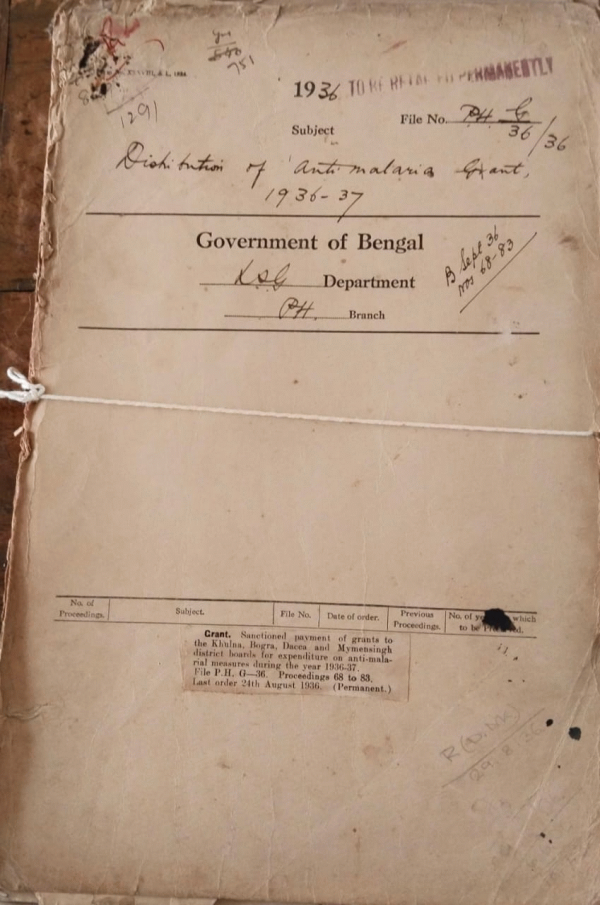 751
1291
1936 TO BE RETAINED PERMANENTLY
File No. PH G
36/36
Subject
Distribution of Antimalaria Grant,
1936-37
Government of Bengal
LSG Department
PH. Branch
B Sept 36
Nos 68-83
No. of Proceedings. Subject. File No. Date of order. Previous Proceedings. No. of which to be
Grant. Sanctioned payment of grants to
the Khulna, Bogra, Dacca and Mymensingh
district boards for expenditure on anti-mala-
rial measures during the year 1936-37.
File P.H. G—36. Proceedings 68 to 83.
Last order 24th August 1936. (Permanent.)